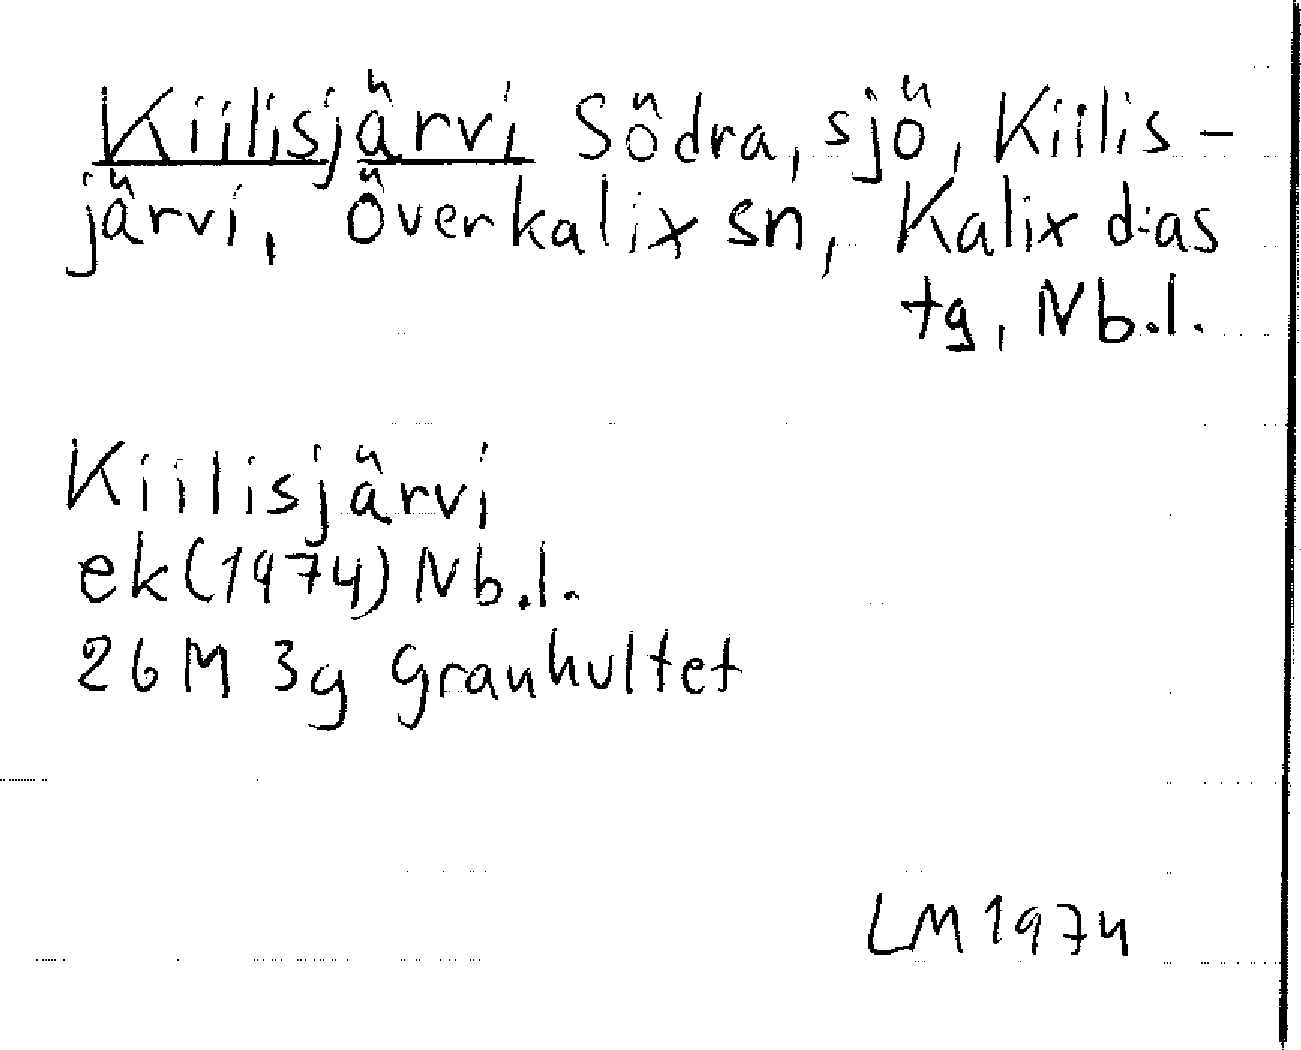 Kiilisjärvi Södra, sjö, Kiilis-
järvi, Överkalix sn, Kalix d:as
tg, Nb.l.
Kiilisjärvi
ek(1974) Nb.l.
26 M 3g Granhultet
LM 1974